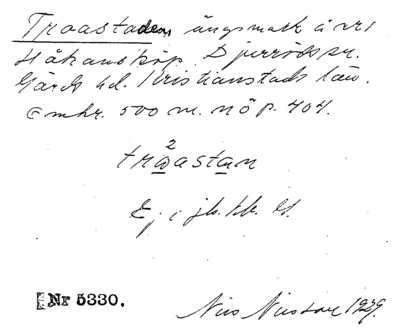 Troastaden, ängsmark å nr 1
Håkansköp, Djurröds sn.
Gärds hd. Kristianstads län.
Omkr. 500 m. n ö p. 404.
2
tråastan
Ej i jb. kb. el.
Nr 5330.
Nils Nilsson 1929.